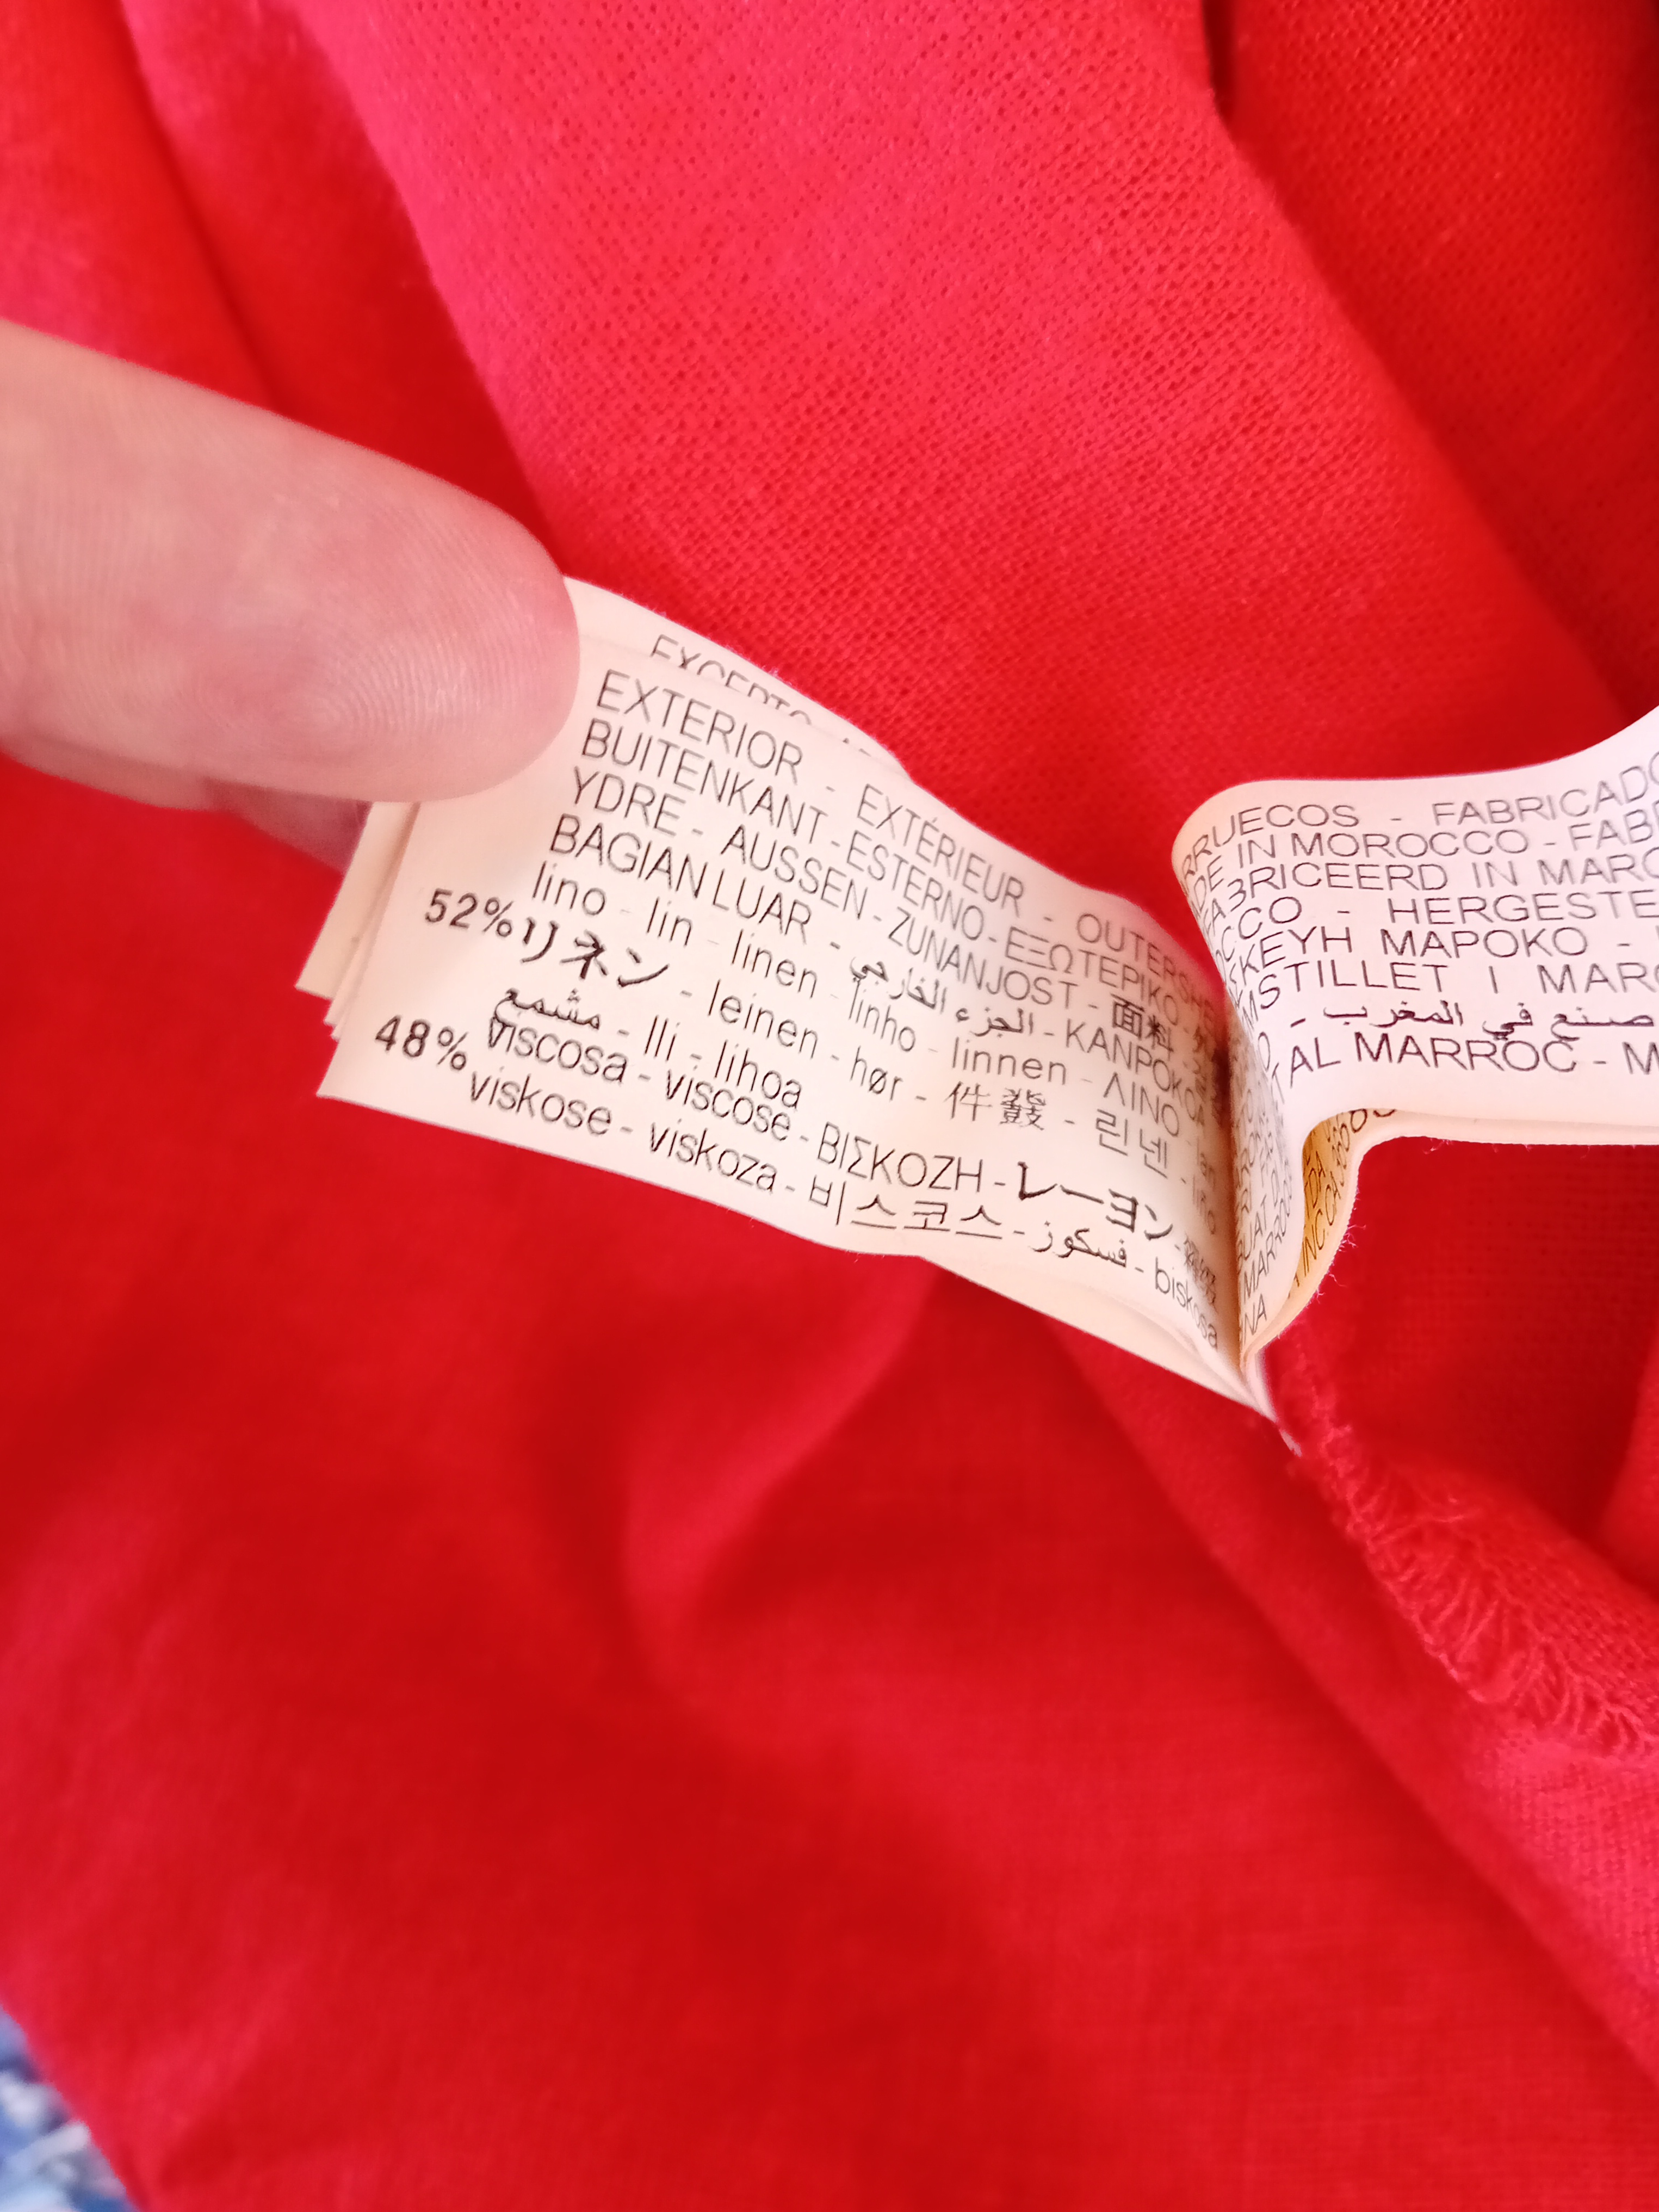 EXTERIOR - EXTÉRIEUR - OUTERSHELL
BUITENKANT - ESTERNO - ΕΞΩΤΕΡΙΚΟ
YDRE - AUSSEN - ZUNANJOST - 面料
BAGIAN LUAR - الجزء الخارجي - KANPOKOA
52% lino - lin - linen - linho - linnen - ΛΙΝΟ
リネン - leinen - hør - 린넨 - lino
مشمع - lli - lihoa
48% viscosa - viscose - ΒΙΣΚΟΖΗ - レーヨン
viskose - viskoza - 비스코스 - فسكوز - biskosa
RRUECOS - FABRICADO
DE IN MOROCCO - FAB
ABRICEERD IN MARO
CCO - HERGESTE
ΣΚΕΥΗ ΜΑΡΟΚΟ -
MSTILLET I MARO
صنع في المغرب -
AL MARROC - M